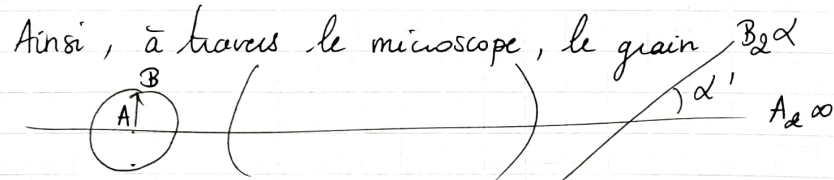 Ainsi, à travers le microscope, le grain
B₂∞
B
α'
A
A₂∞